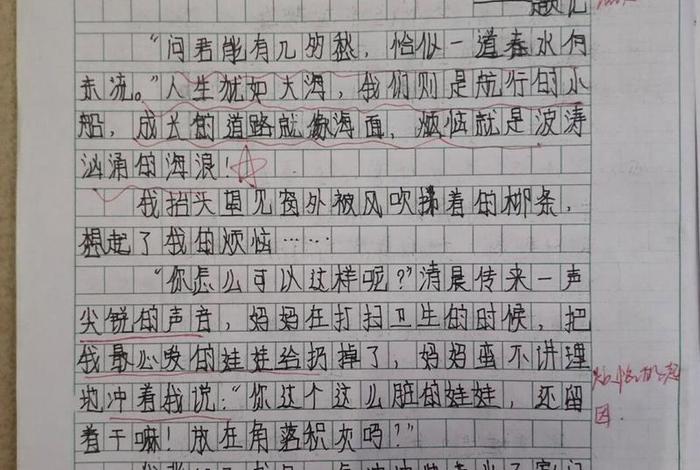 ——题记
“问君能有几多愁，恰似一道春水向
东流。”人生犹如大海，我们则是航行的小
船，成长的道路就像海面，烦恼就是波涛
汹涌的海浪！
我抬头望见窗外被风吹拂着的柳条，
想起了我的烦恼……
“你怎么可以这样呢？”清晨传来一声
尖锐的声音，妈妈在打扫卫生的时候，把
我最心爱的娃娃给扔掉了，妈妈蛮不讲理
地冲着我说：“你这个这么脏的娃娃，还留
着干嘛！放在角落积灰吗？”
烦恼的起
因